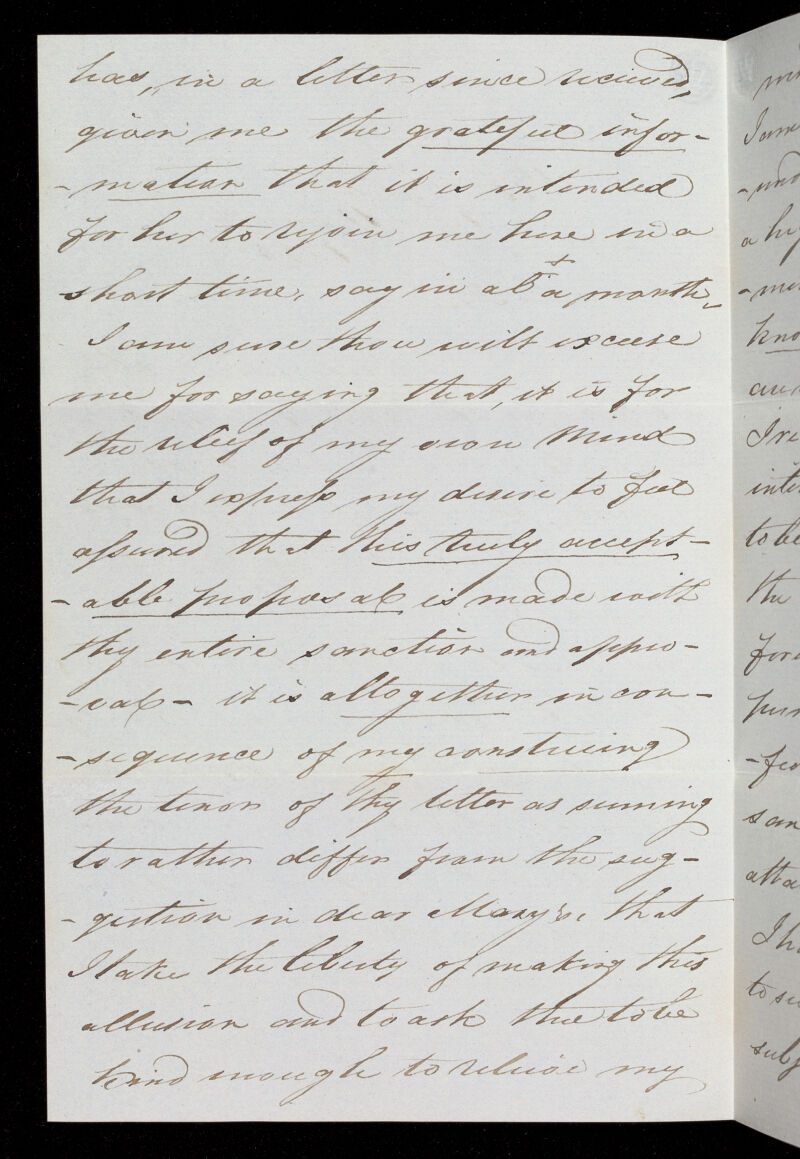 has, in a letter since received,
given me the grateful infor-
-mation that it is intended
for her to rejoin me here in a
short time, say in abt a month.
I am sure thou wilt excuse
me for saying that, it is for
the relief of my own mind
that I express my desire to feel
assured that this truly accept-
-able proposal is made with
thy entire sanction and appro-
-val - it is altogether in con-
-sequence of my construing
the tenor of thy letter as seeming
to rather differ from the sug-
-gestion in dear Mary's, that
I take the liberty of making this
allusion and to ask thee to be
kind enough to relieve my
I am
-und
a hig
kno
inter
to be
the
san
atta
I h
to su
subj